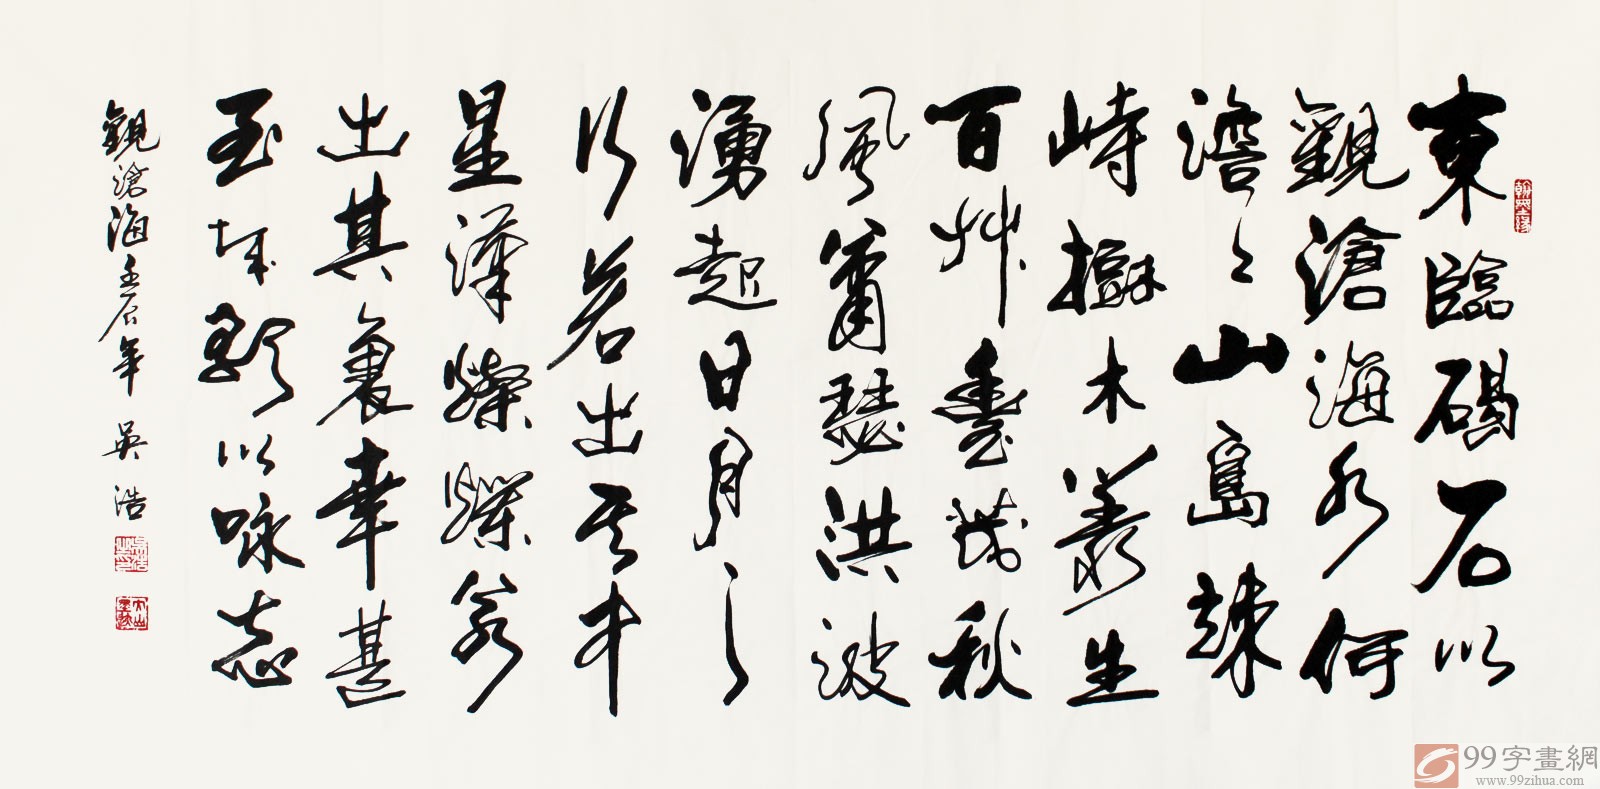 東臨碣石以
觀滄海水何
澹〻山島竦
峙樹木叢生
百艸豐茂秋
風蕭瑟洪波
湧起日月之
行若出其中
星漢燦爛若
出其裏幸甚
至哉歌以咏志
觀滄海 壬辰年 吴浩
99字畫網
www.99zihua.com